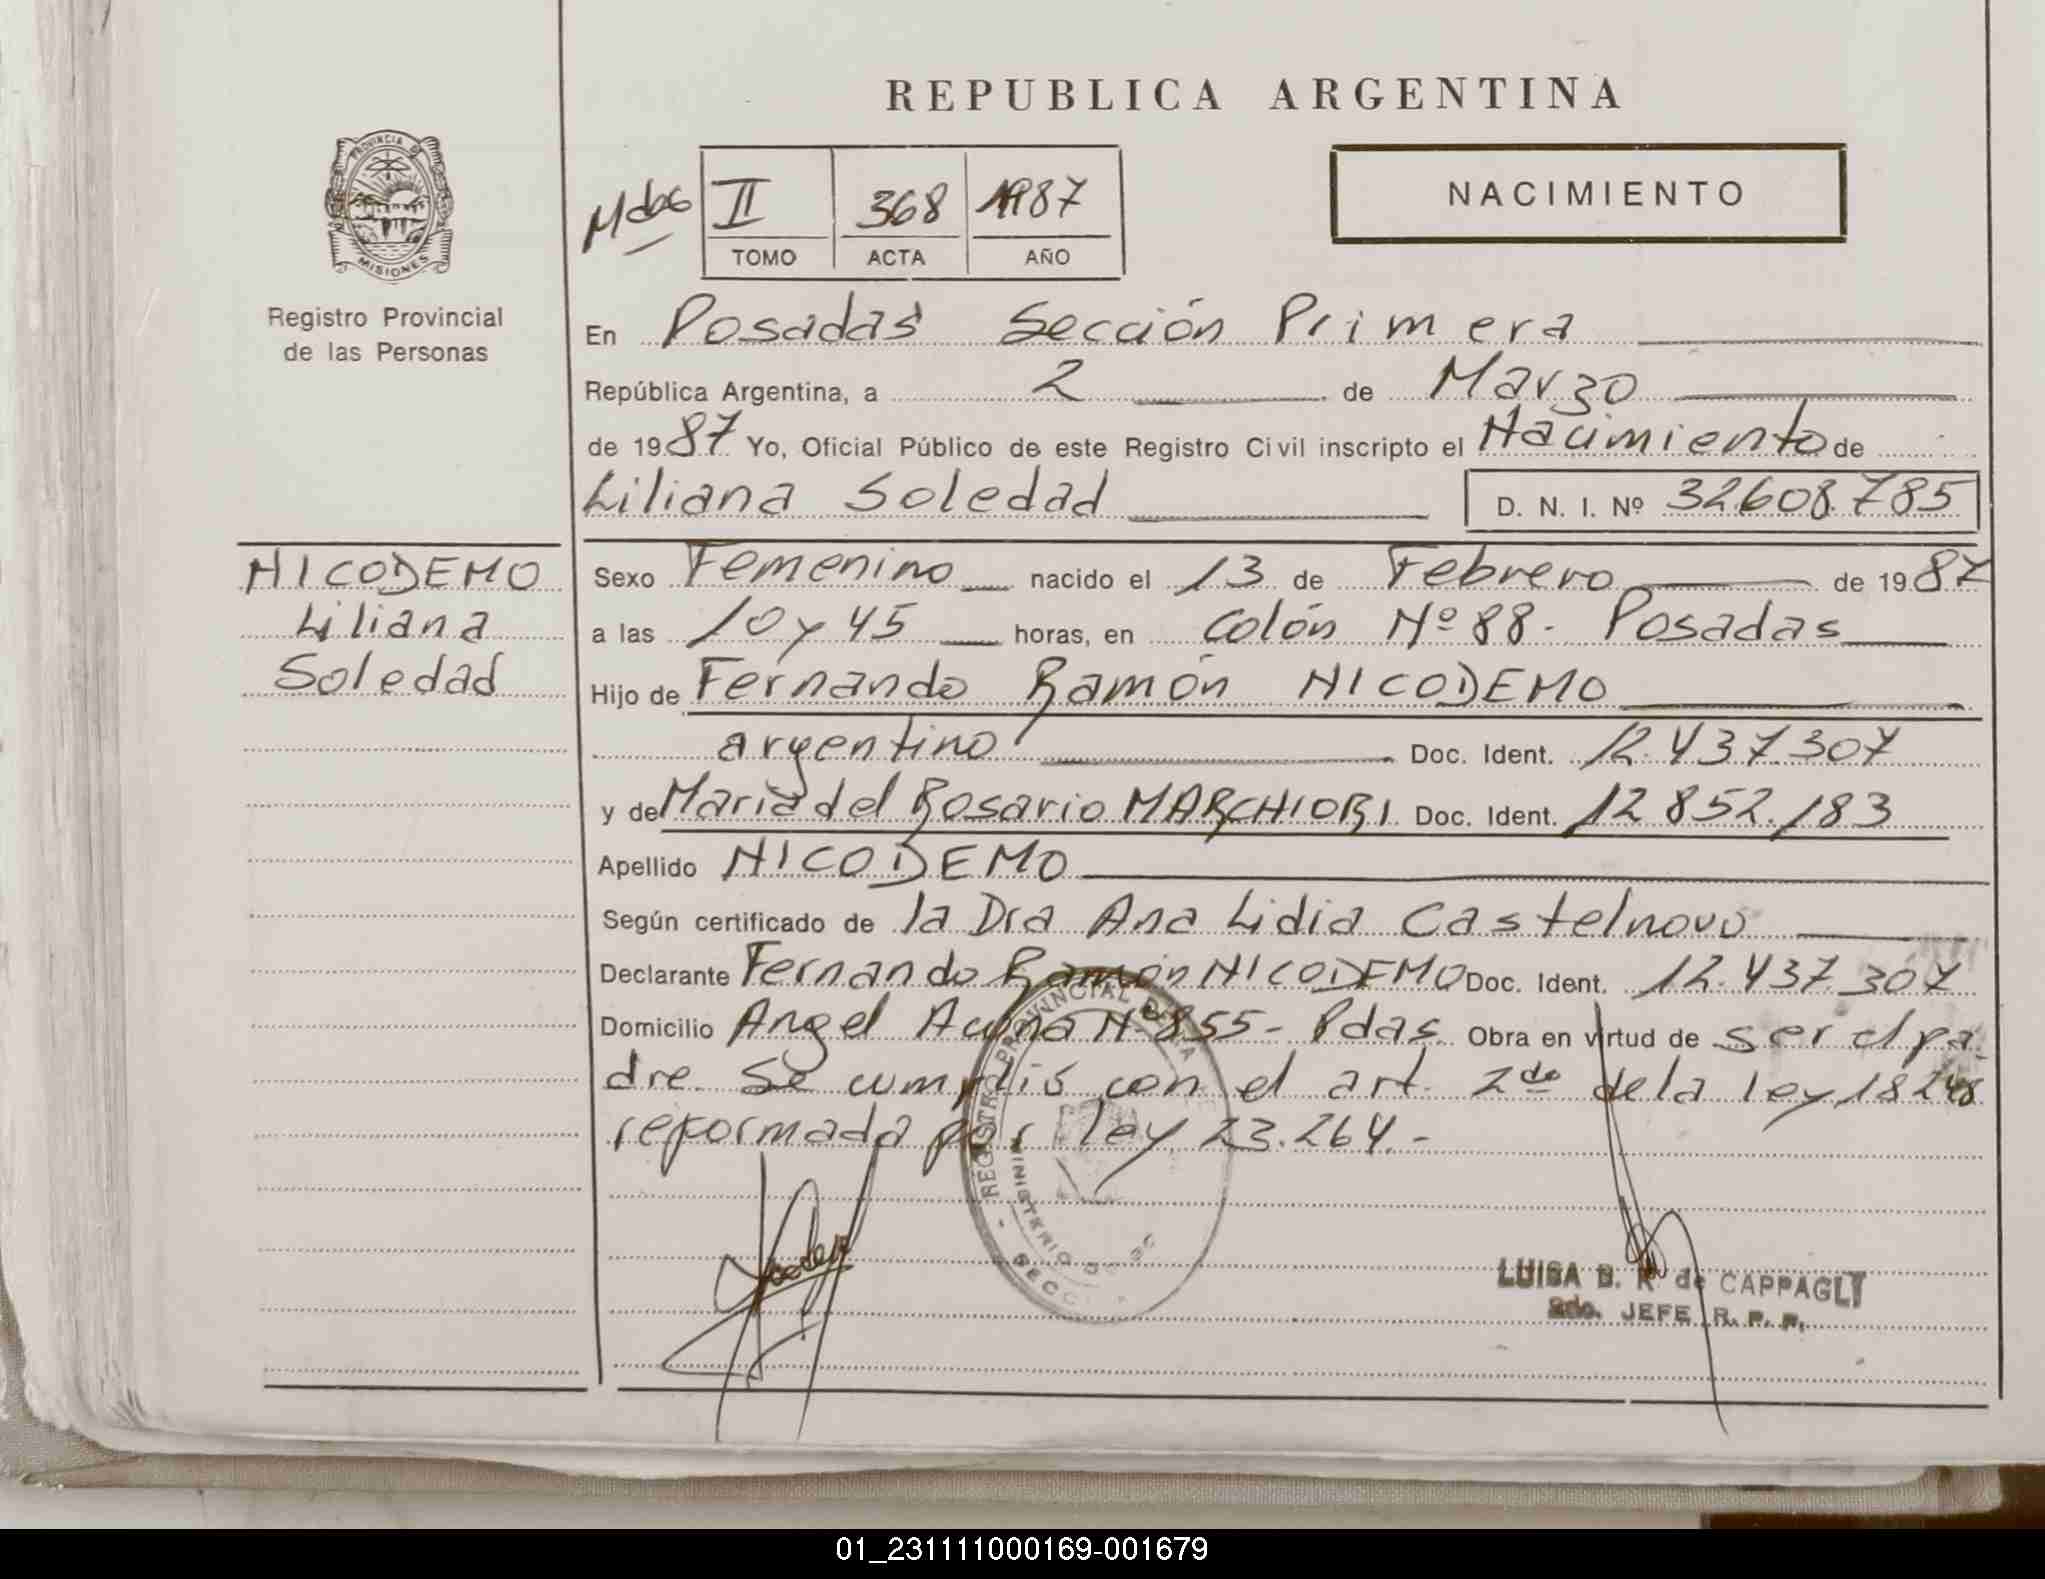 REPUBLICA ARGENTINA
PROVINCIA D
MISIONES
Registro Provincial
de las Personas
II 368 1987
TOMO ACTA AÑO
NACIMIENTO
En Posadas Sección Primera
República Argentina, a 2 de Marzo
de 1987 Yo, Oficial Público de este Registro Civil inscripto el Nacimiento de
Liliana Soledad D. N. I. Nº 32.608.785
NICODEMO
Liliana
Soledad
Sexo Femenino nacido el 13 de Febrero de 1987
a las 10 y 45 horas, en Colón Nº 88. Posadas
Hijo de Fernando Ramón NICODEMO
argentino Doc. Ident. 12.437.307
y de Maria del Rosario MARCHIORI Doc. Ident. 12.852.183
Apellido NICODEMO
Según certificado de la Dra Ana Lidia Castelnovo
Declarante Fernando Ramón NICODEMO Doc. Ident. 12.437.307
Domicilio Angel Acuña Nº 855- Pdas. Obra en virtud de ser el pa-
dre. Se cumplió con el art. 2do de la ley 18248
reformada por ley 23.264.-
REGISTRO PROVINCIAL
MINISTERIO DE
SECC
LUISA B. R. de CAPPAGLI
2do. JEFE R. P. P.
01_231111000169-001679